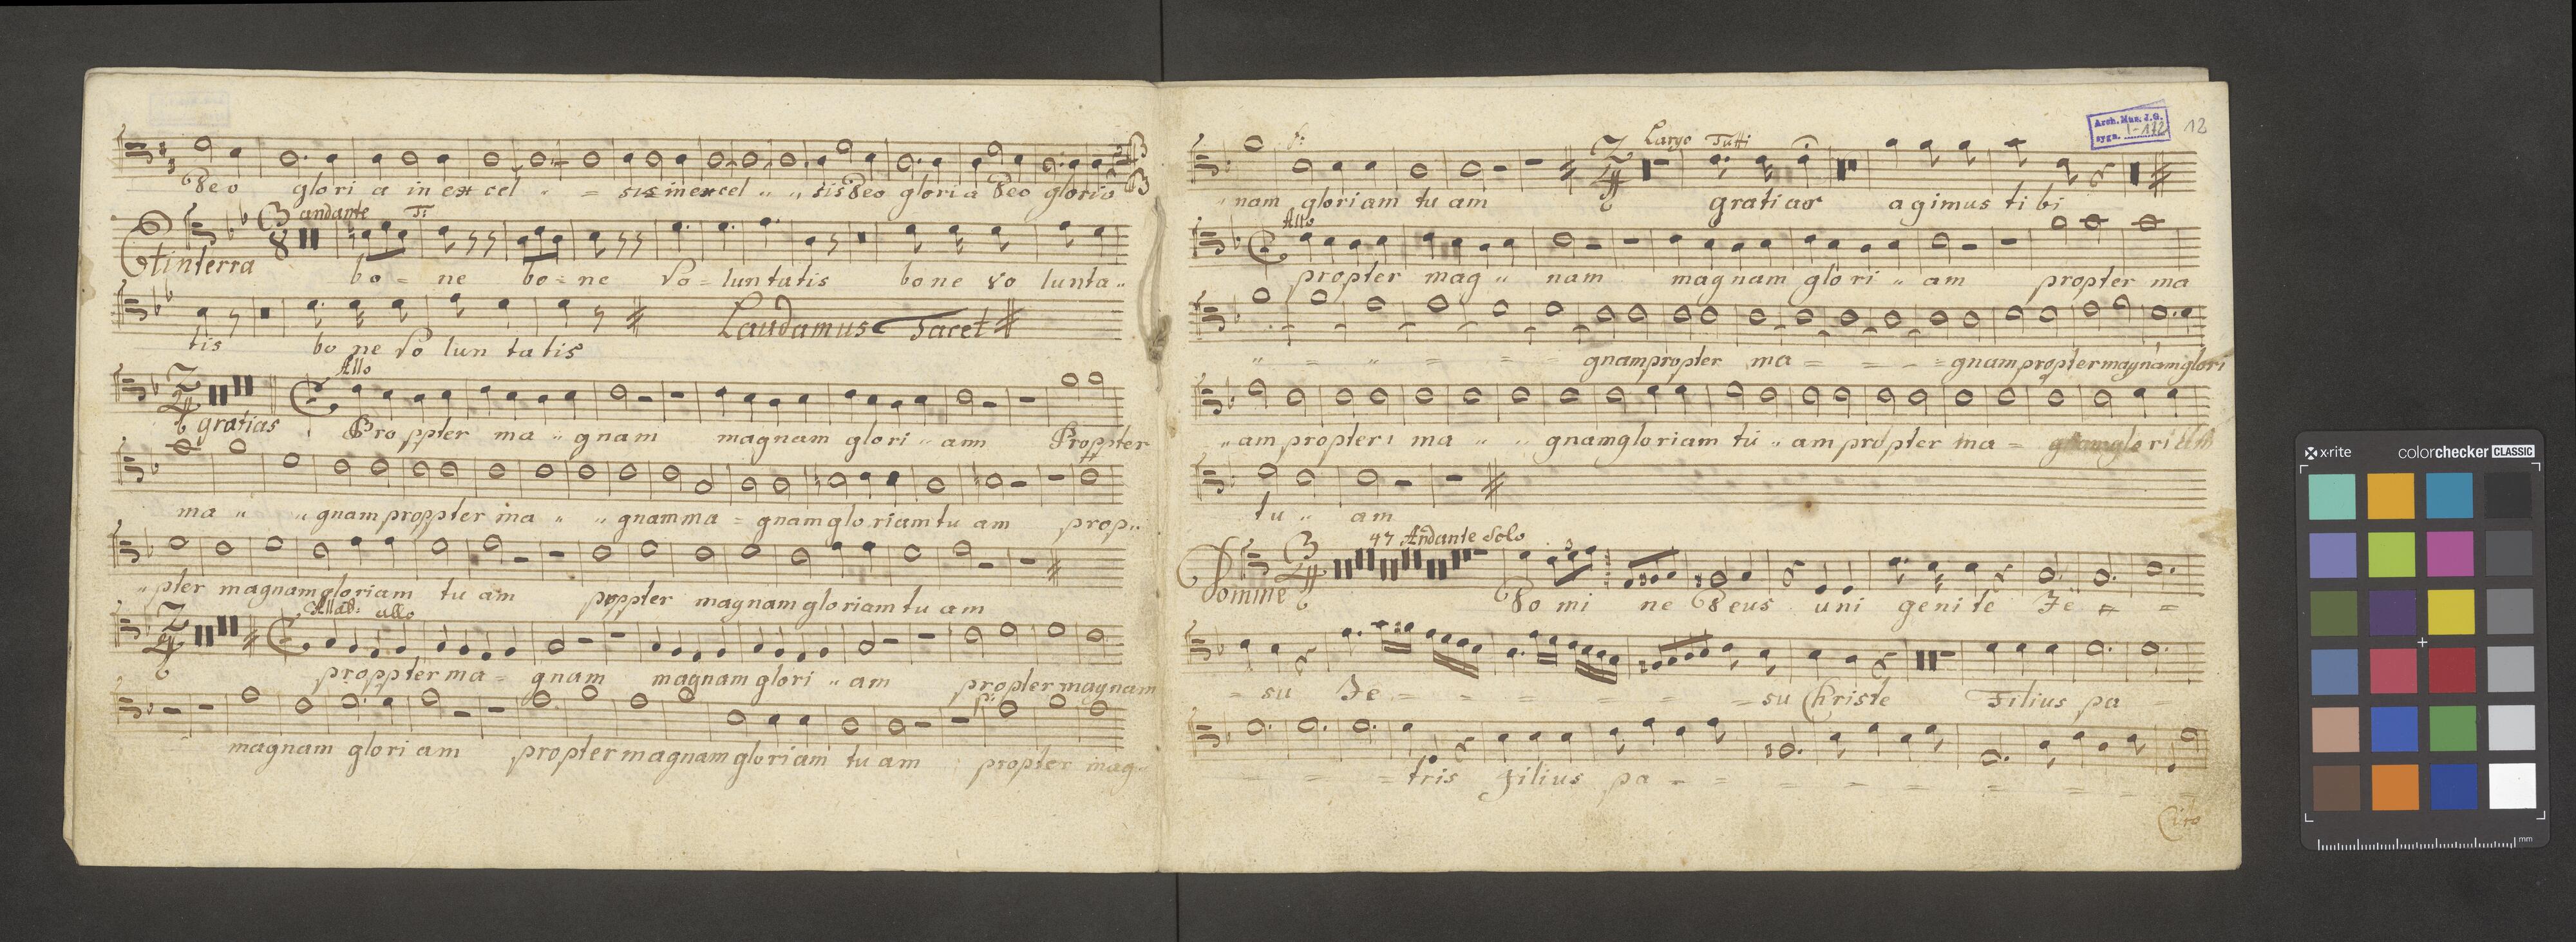 Deo gloria in excel - = sis in excel „ „ sis Deo gloria Deo gloria
andante Ti
Et in terra bo = ne bo = ne Vo = luntatis bone vo lunta „
tis bo ne Vo lun ta tis Laudamus Tacet
Allo
gratias Proppter ma „ gnam magnam glori „ am Proppter
ma „ „ gnam proppter ma „ „ gnam ma = gnam gloriam tu am prop „
„ pter magnam gloriam tu am poppter magnam gloriam tu am
allo
proppter ma = gnam magnam glori „ am propter magnam
magnam glori am propter magnam gloriam tu am propter mag „
Arch. Mus. J.G.
sygn. I-172
12
„ nam gloriam tu am
Largo Tutti
gratias agimus ti bi
Allo
propter mag „ nam magnam glori „ am propter ma
„ = „ = = = gnam propter ma = = - = gnam propter magnam glori
„ am propter ma „ „ gnam gloriam tu „ am propter ma = gnam glori am
tu „ am
47 Andante Solo
Domine Domi ne Deus uni geni te Je = =
= su Je = = = = = = su Christe Filius pa =
= = = tris Filius pa - = = = = = = =
Cito
x-rite colorchecker CLASSIC
mm